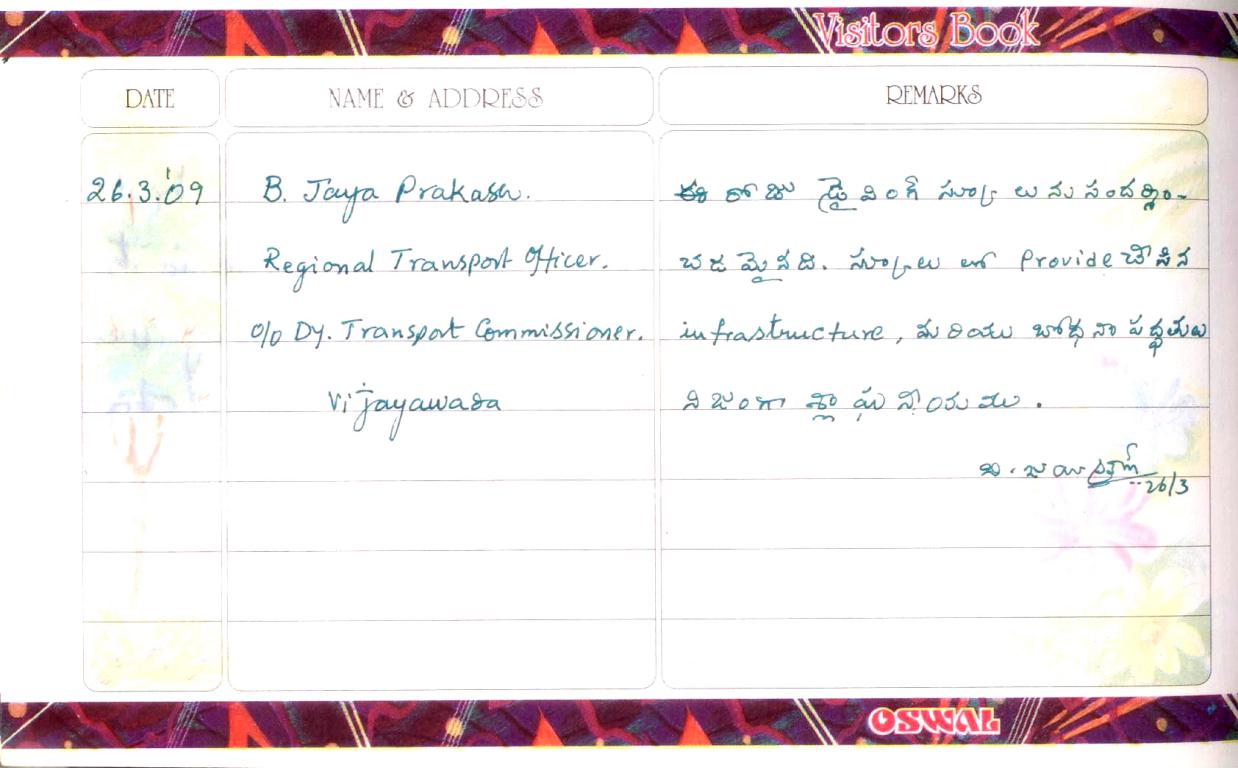 Visitors Book
DATE NAME & ADDRESS REMARKS
26.3.'09 B. Jaya Prakash. ఈ రోజు డ్రైవింగ్ స్కూలు ను సందర్శిం-
Regional Transport Officer. చడమైనది. స్కూలు లో Provide చేసిన
O/o Dy. Transport Commissioner. infrastructure, మరియు బోధనా పద్ధతులు
Vijayawada నిజంగా శ్లాఘనీయము.
బి. జయప్రకాష్
26/3
OSWAL